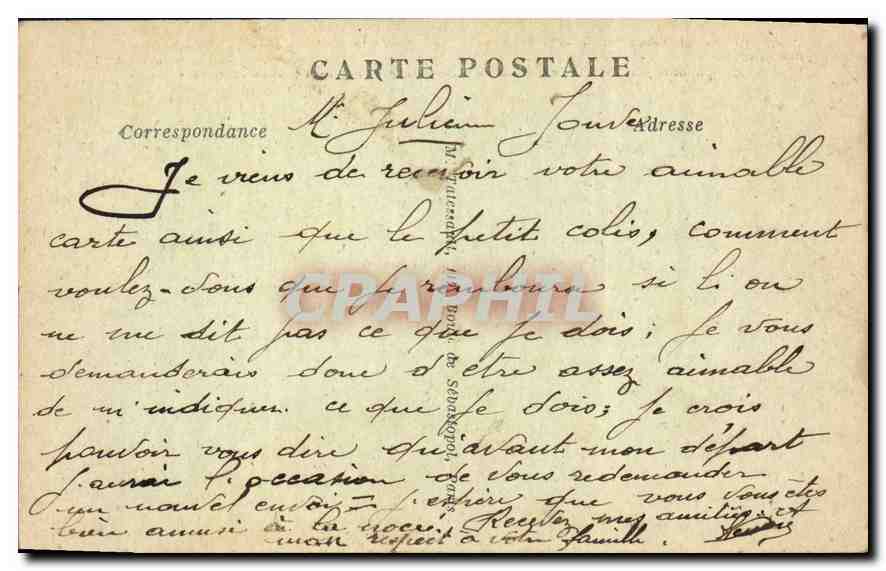 CARTE POSTALE
Correspondance
Mr Julien Jouve
Adresse
Je viens de recevoir votre aimable
carte ainsi que le petit colis, comment
voulez-vous que je rembourse si l'on
ne me dit pas ce que je dois; Je vous
demanderais donc d'etre assez aimable
de m'indiquer ce que je dois; je crois
pouvoir vous dire qu'avant mon départ
j'aurai l'occasion de vous redemander
un nouvel envoi = j'espère que vous vous êtes
bien amusé à la noce. Recevez mes amitiés et
mon respect à votre famille.
Boul. de Sébastopol, Paris
CPAPHIL